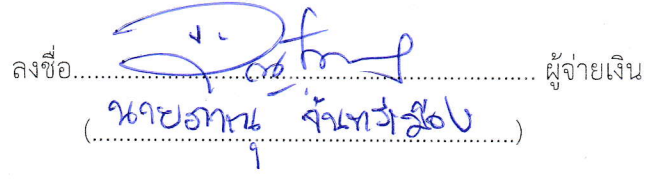 ลงชื่อ........................................ ผู้จ่ายเงิน
(นายภาณุ จันทร์เมือง)